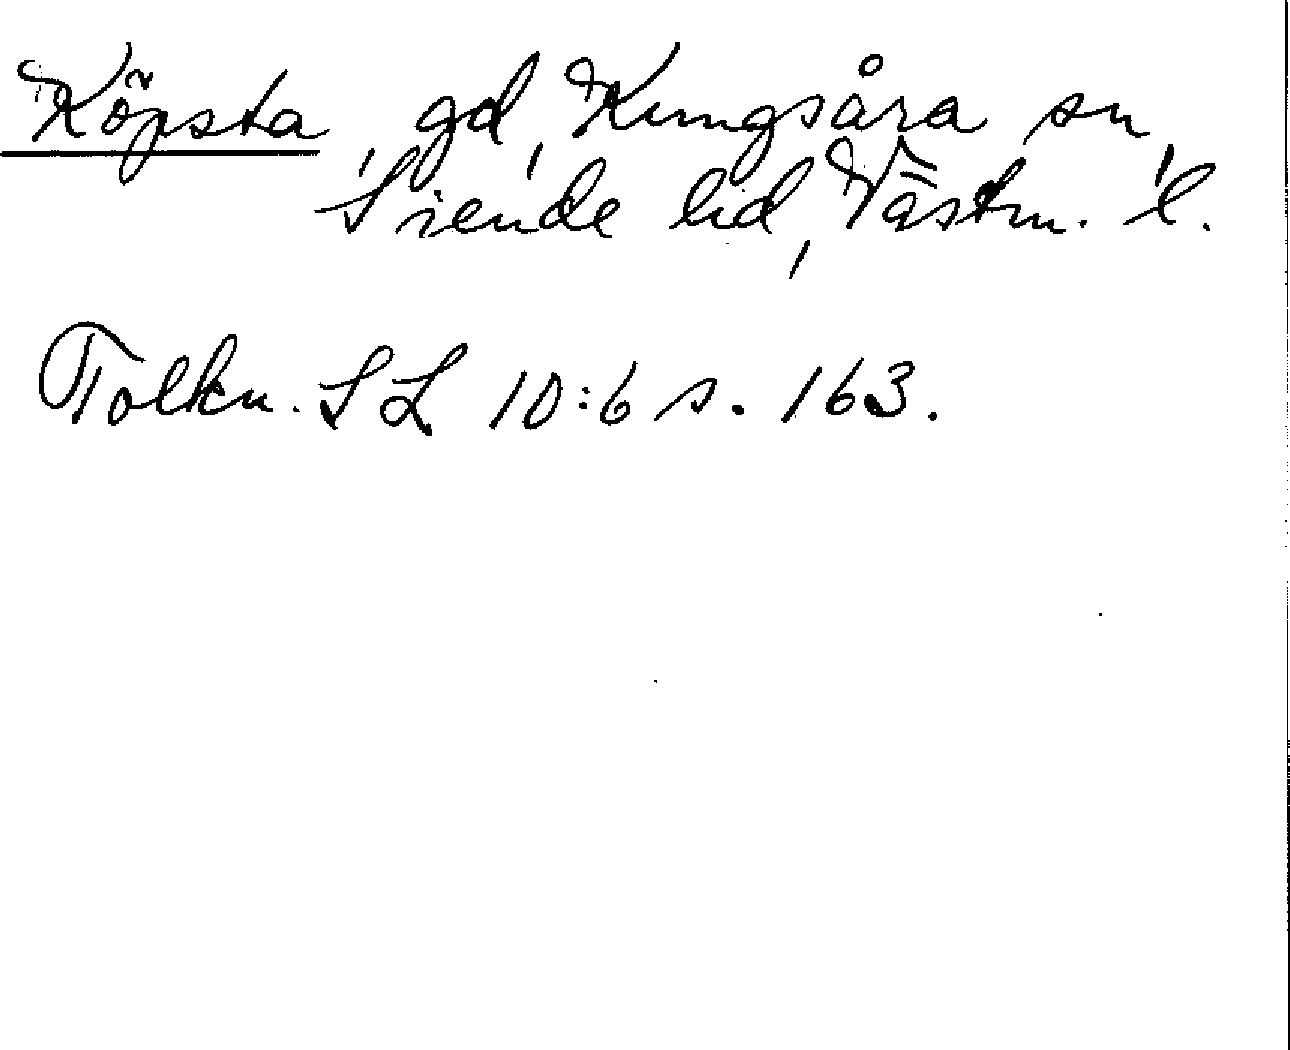 Köpsta, gd, Kungsåra sn,
Siende hd, Västm. l.
Tolkn. SL 10:6 s. 163.